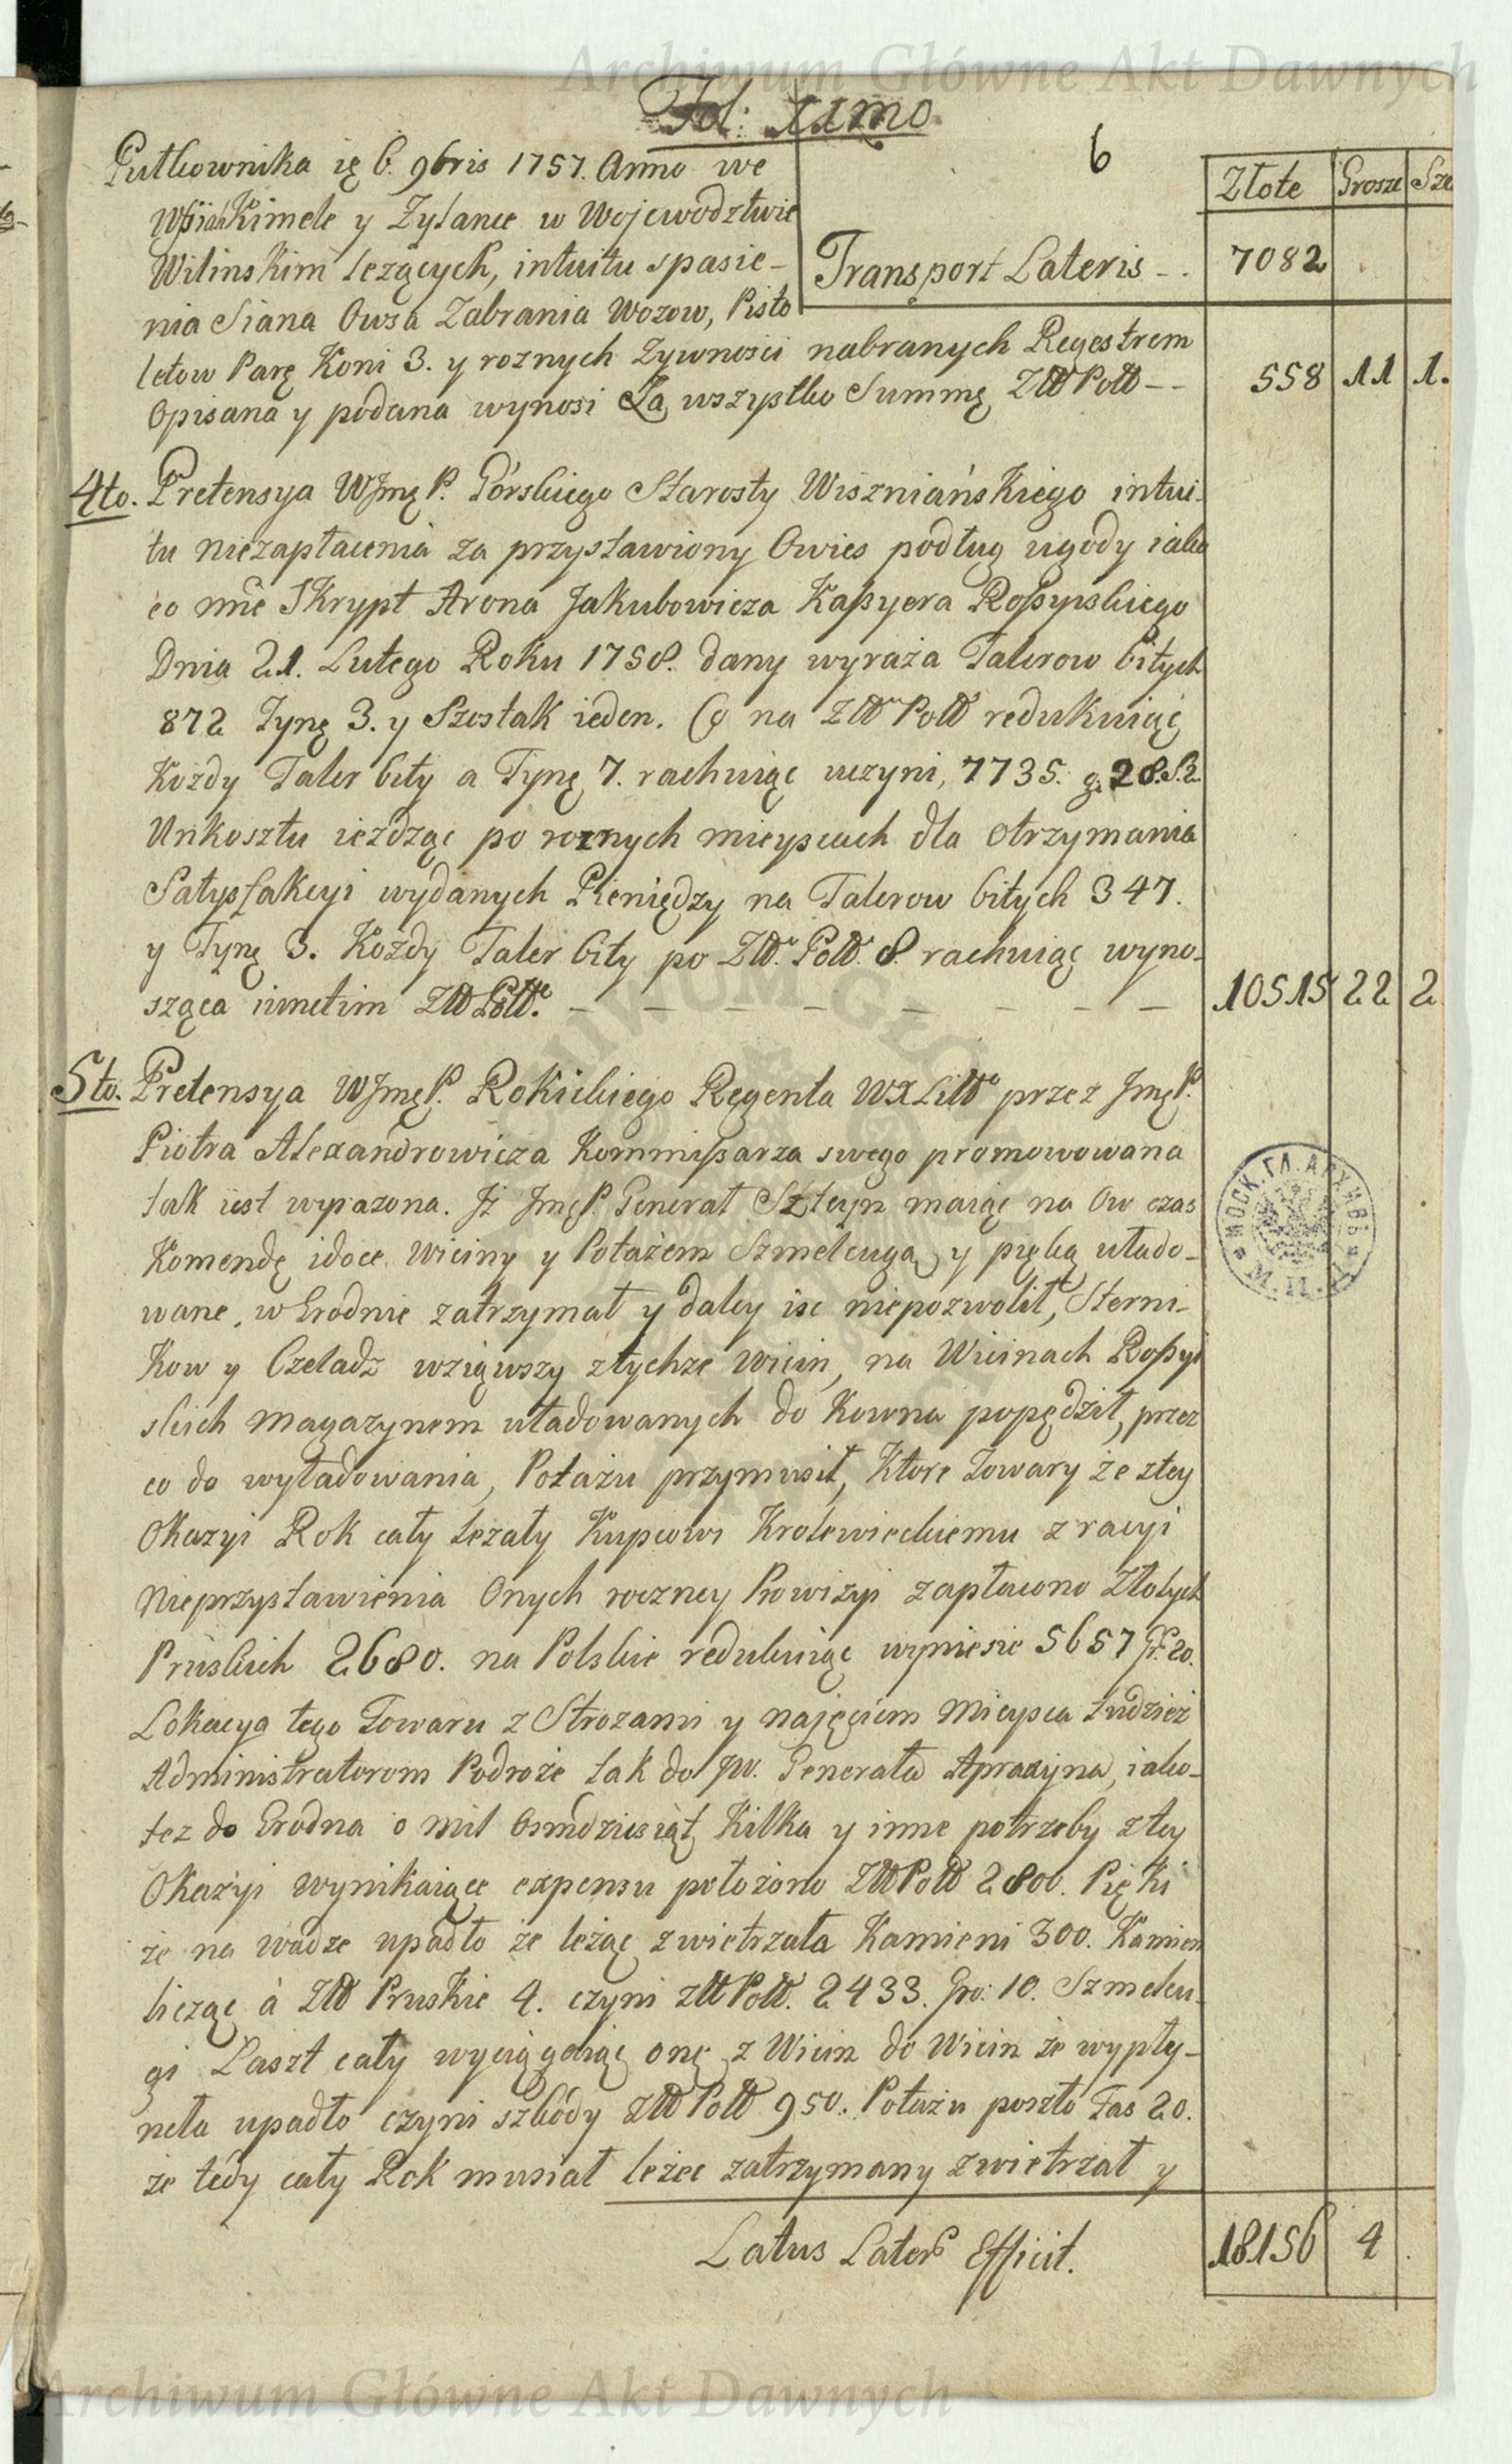 Archiwum Główne Akt Dawnych
Fol: 11mo
6
Złote Grosze Sze
Pułkownika ię 6. 9bris 1757. Anno we
Wsiah Kimele y Zylance w Wojewodztwie
Wilinskim leżących, intuitu spasie-
nia Siana Owsa Zabrania Wozow, Pisto
Transport Lateris -. 7082
letow Parę Koni 3. y roznych Zywnosci nabranych Regestrem
Opisana y podana wynosi Za wszystko Summę Złł Poll -- 558 11 1.
4to. Pretensya WJmę P. Górskiego Starosty Wiszniańskiego intui-
tu niezapłacenia za przystawiony Owies podług ugody iako
co mie Skrypt Arona Jakubowicza Kaßyera Roßyiskiego
Dnia 21. Lutego Roku 1758. dany wyraża Talerow bitych
872 Tynę 3. y Szostak ieden. Co na Złł Poll redukuiąc
Kożdy Taler bity a Tynę 7. rachuiąc uczyni, 7735. g. 28. S. 2.
Unkosztu ieżdżąc po roznych mieyscach dla otrzymania
Satysfakcyi wydanych Pieniędzy na Talerow bitych 347.
y Tynę 3. Kożdy Taler bity po Złł. Poll. 8. rachuiąc wyno-
sząca iunctim Złł Poll. - - - - - - - - 10515 22 2
5to. Pretensya WJmę P. Rokickiego Regenta WXLitt przez Jmę P.
Piotra Alexandrowicza Kommißarza swego promowowana
tak iest wyrażona. Iż Jmę P. Generał Szteyn maiąc na Ow czas
Komendę idoce Wiciny y Potażem Szmelcugą y pięką ułado-
wane, w Grodnie zatrzymał y daley isc niepozwolił, Sterni-
Kow y Czeladz wziąwszy z tychże Wicin, na Wicinach Roßyi
skich Magazynem uładowanych do Kowna popędził, przez
co do wyładowania Potażu przymusił, Ktore Towary że z tey
Okazyi Rok cały leżały Kupcowi Krolewieckiemu z racyi
Nieprzystawienia Onych roczney Prowizyi zapłacono Złotych
Pruskich 2680. na Polskie redukuiąc wyniesie 5657 Gr. 20.
Lokacya tego Towaru z Strozami y najęciem Mieysca tudzież
Administratorom Podroże tak do JW. Generała Apraxyna, iako-
tez do Grodna o mil Osmdziesiąt Kilka y inne potrzeby z tey
Okazyi wynikaiące expensu położono Złł Poll 2800. Pięki
że na wadze upadło że leżąc zwietrzała Kamieni 300. Kamien
licząc à Złł Pruskie 4. czyni Złł Poll. 2433. Gro: 10. Szmelcu-
gi Łaszt cały wyciągaiąc onę z Wicin do Wicin że wypły-
neła upadło czyni szkody Złł Poll 950. Potażu poszło Fas 20.
że tedy cały Rok musiał leżec zatrzymany zwietrzał y
Latus Lateris Efficit. 18156 4
МОСК. ГЛ. АРХИВЪ М. И. Д.
Archiwum Główne Akt Dawnych